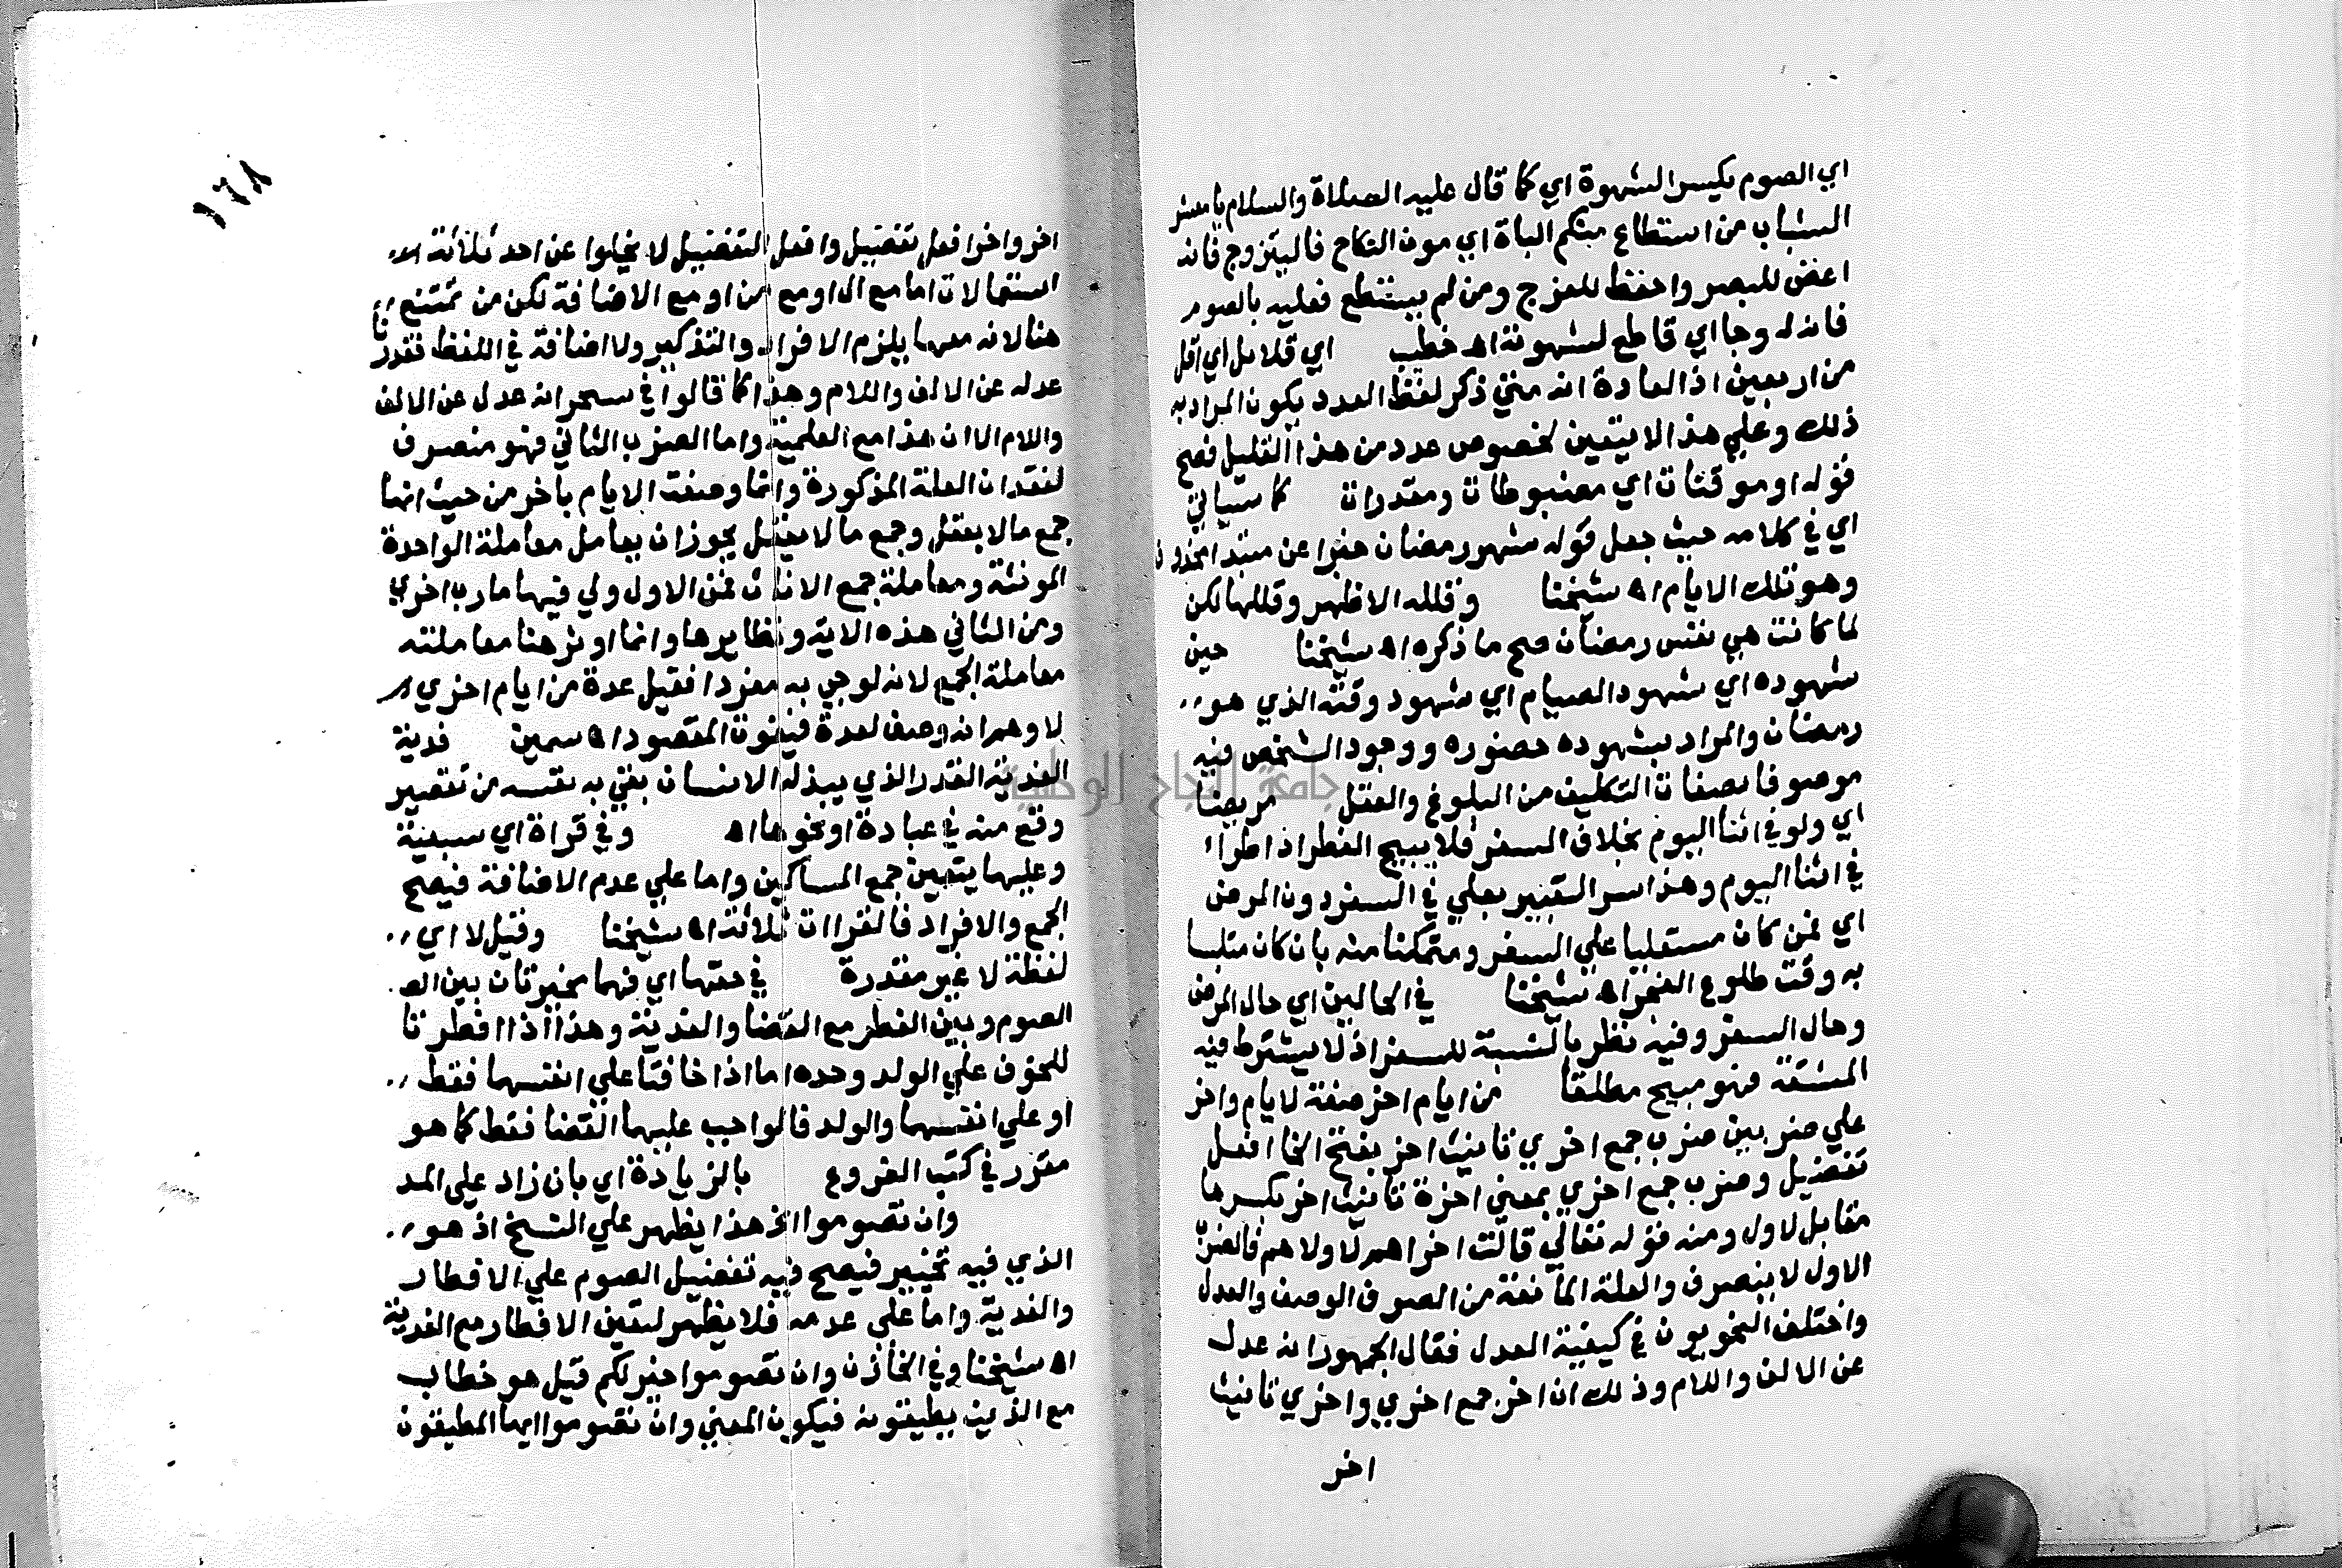 اي الصوم بكيسر الشهوة اي كما قال عليه الصلاة والسلام يا معشر
الشباب من استطاع منكم الباة اي مون النكاح فاليتزوج فانه
اغض للبصر واحفظ للفرج ومن لم يستطع فعليه بالصوم
فانه له وجا اي قاطع لشهوته اه خطيب اي قلايل اي اقل
من اربعين اذ العادة انه متي ذكر لفظ العدد يكون المراد به
ذلك وعلي هذا لا يتعين لخصوص عدد من هذا القليل فصح
قوله او موقتات اي مضبوطات ومقدرات كما سياتي
اي في كلامه حيث جعل قوله شهر رمضان خبرا عن مبتدا محذوف
وهو تلك الايام اه شيخنا وقلله الاظهر وقللها لكن
لما كانت هي نفس رمضان صح ما ذكره اه شيخنا حين
شهوده اي شهود الصيام اي شهود وقته الذي هو
رمضان والمراد بشهوده حضوره ووجود الشخص فيه
موصوفا بصفات التكليف من البلوغ والعقل مريضا
اي ولو في اثنا اليوم بخلاف السفر فلا يبيح الفطر اذا طرا
في اثنا اليوم وهذا سر التعبير بعلي في السفر دون المرض
اي فمن كان مستعليا علي السفر ومتمكنا منه بان كان متلبسا
به وقت طلوع الفجر اه شيخنا في الحالين اي حال المرض
وحال السفر وفيه نظر بالنسبة للسفر اذ لا يشترط فيه
المشقة فهو مبيح مطلقا من ايام اخر صفة لايام واخر
علي ضربين ضرب جمع اخري تانيث اخر بفتح الخا افعل
تفضيل وضرب جمع اخري بمعني اخرة تانيث اخر بكسرها
مقابل لاول ومنه قوله تعالي قالت اخراهم لاولاهم فالضرب
الاول لا ينصرف والعلة المانعة من الصرف الوصف والعدل
واختلف النحويون في كيفية العدل فقال الجمهور انه عدل
عن الالف واللام وذلك ان اخر جمع اخري واخري تانيث
اخر
١٦٨
اخر واخر افعل تفضيل وافعل التفضيل لا يخلوا عن احد ثلاثة
استعمالات اما مع ال او مع من او مع الاضافة لكن من تمتنع
هنا لانه معها يلزم الافراد والتذكير ولا اضافة في اللفظ فقدرنا
عدله عن الالف واللام وهذا كما قالوا في سحر انه عدل عن الالف
واللام الا ان هذا مع العلمية واما الضرب الثاني فهو منصرف
لفقدان العلة المذكورة وانما وصفت الايام باخر من حيث انها
جمع ما لا يعقل وجمع ما لا يعقل يجوز ان يعامل معاملة الواحدة
المونثة ومعاملة جمع الاناث فمن الاول ولي فيها مارب اخري
ومن الثاني هذه الاية ونظايرها وانما اوثر هنا معاملته
معاملة الجمع لانه لو جي به مفردا فقيل عدة من ايام اخري
لاوهم انه وصف لعدة فيفوت المقصود اه سمين فدية
الفدية القدر الذي يبذله الانسان يقي به نفسه من تقصير
وقع منه في عبادة او نحوها اه وفي قراة اي سبعية
وعليها يتعين جمع المساكين واما علي عدم الاضافة فيصح
الجمع والافراد فالقراات ثلاثة اه شيخنا وقيل لا اي
لفظة لا غير مقدرة في حقها اي فهما مخيرتان بين الص
الصوم وبين الفطر مع القضا والفدية وهذا اذا افطرتا
للخوف علي الولد وحده اما اذا خافتا علي انفسهما فقط
او علي انفسهما والولد فالواجب عليهما القضا فقط كما هو
مقرر في كتب الفروع بالزيادة اي بان زاد علي المد
وان تصوموا الخ هذا يظهر علي النسخ اذ هو
الذي فيه تخيير فيصح فيه تفضيل الصوم علي الافطار
والفدية واما علي عدمه فلا يظهر لتعين الافطار مع الفدية
اه شيخنا وفي الخازن وان تصوموا خير لكم قيل هو خطاب
مع الذين يطيقونه فيكون المعني وان تصوموا ايها المطيقون
جامعة النجاح الوطنية